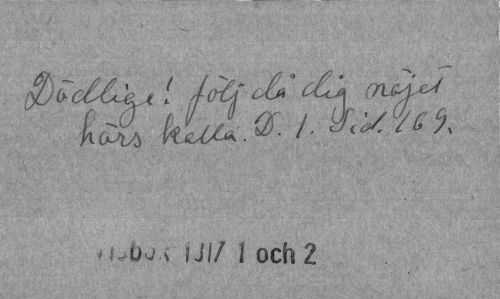 Dödlige! följ då dig nöjet
hörs kalla. D. 1. Sid. 169.
Visbok 1317 1 och 2